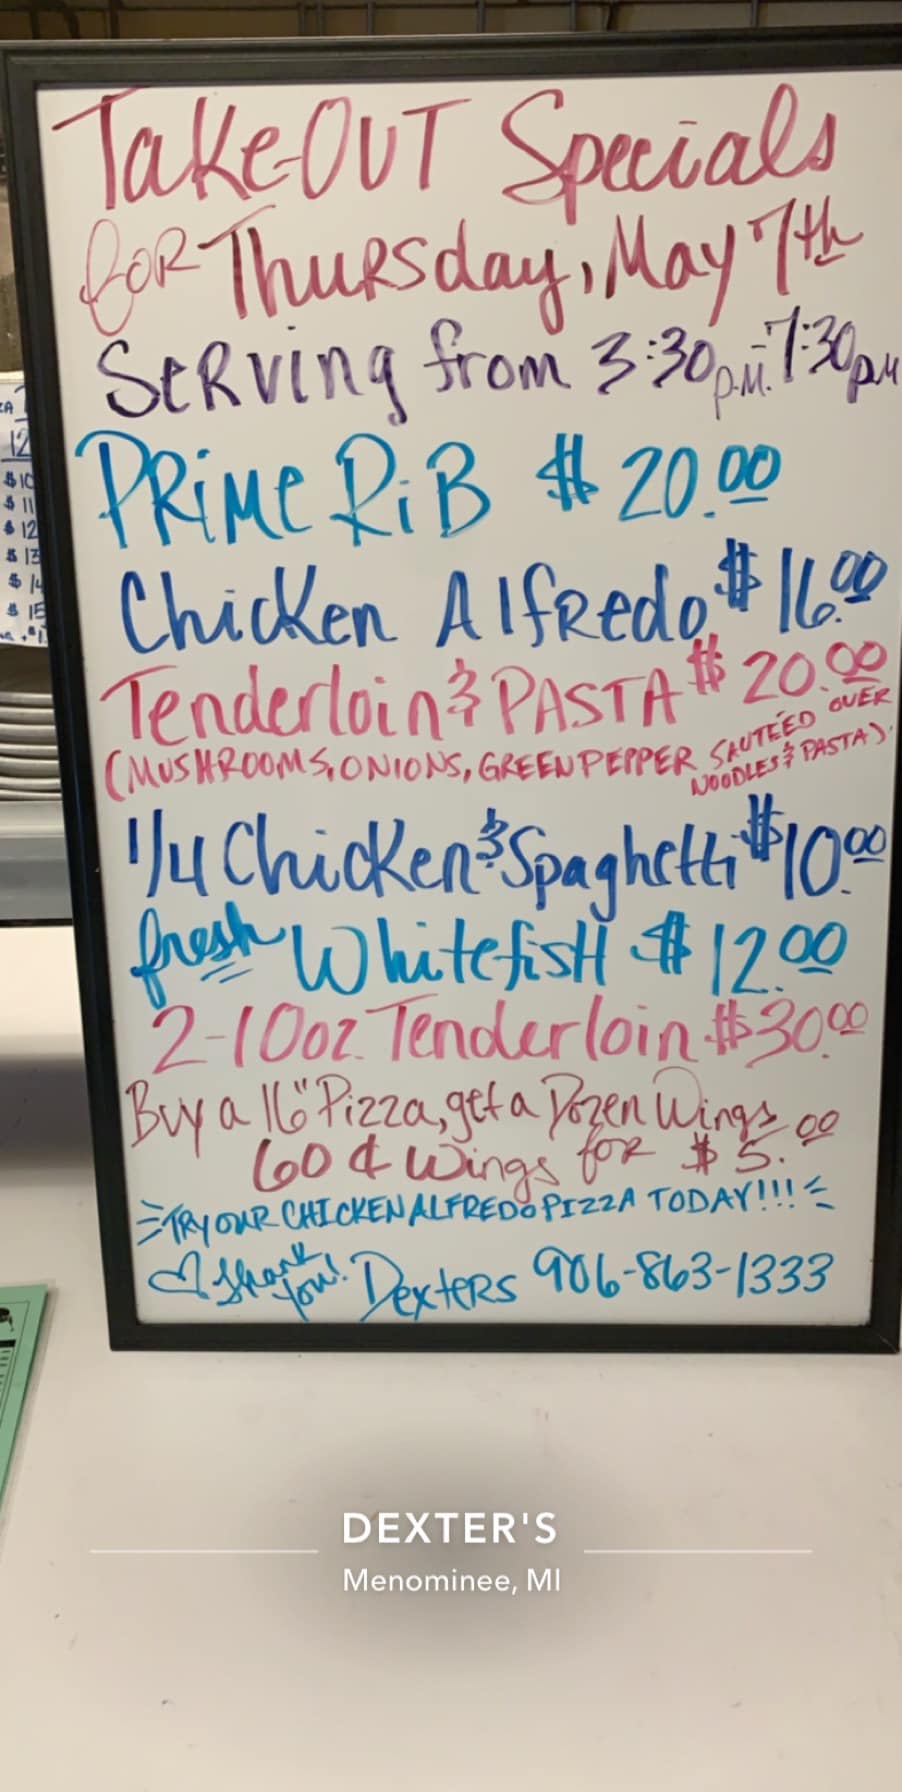 Take-Out Specials
for Thursday, May 7th
Serving from 3:30 p.m.-7:30 p.m
Prime Rib $20.00
Chicken Alfredo $16.00
Tenderloin & PASTA $20.00
(MUSHROOMS, ONIONS, GREEN PEPPER SAUTÉED OVER
NOODLES & PASTA)
1/4 Chicken & Spaghetti $10.00
fresh Whitefish $12.00
2-10oz. Tenderloin $30.00
Buy a 16" Pizza, get a Dozen Wings
60¢ Wings for $5.00
TRY OUR CHICKEN ALFREDO PIZZA TODAY!!!
♡ Thank you! Dexters 906-863-1333
12
$10
$11
$12
$13
$14
$15
DEXTER'S
Menominee, MI